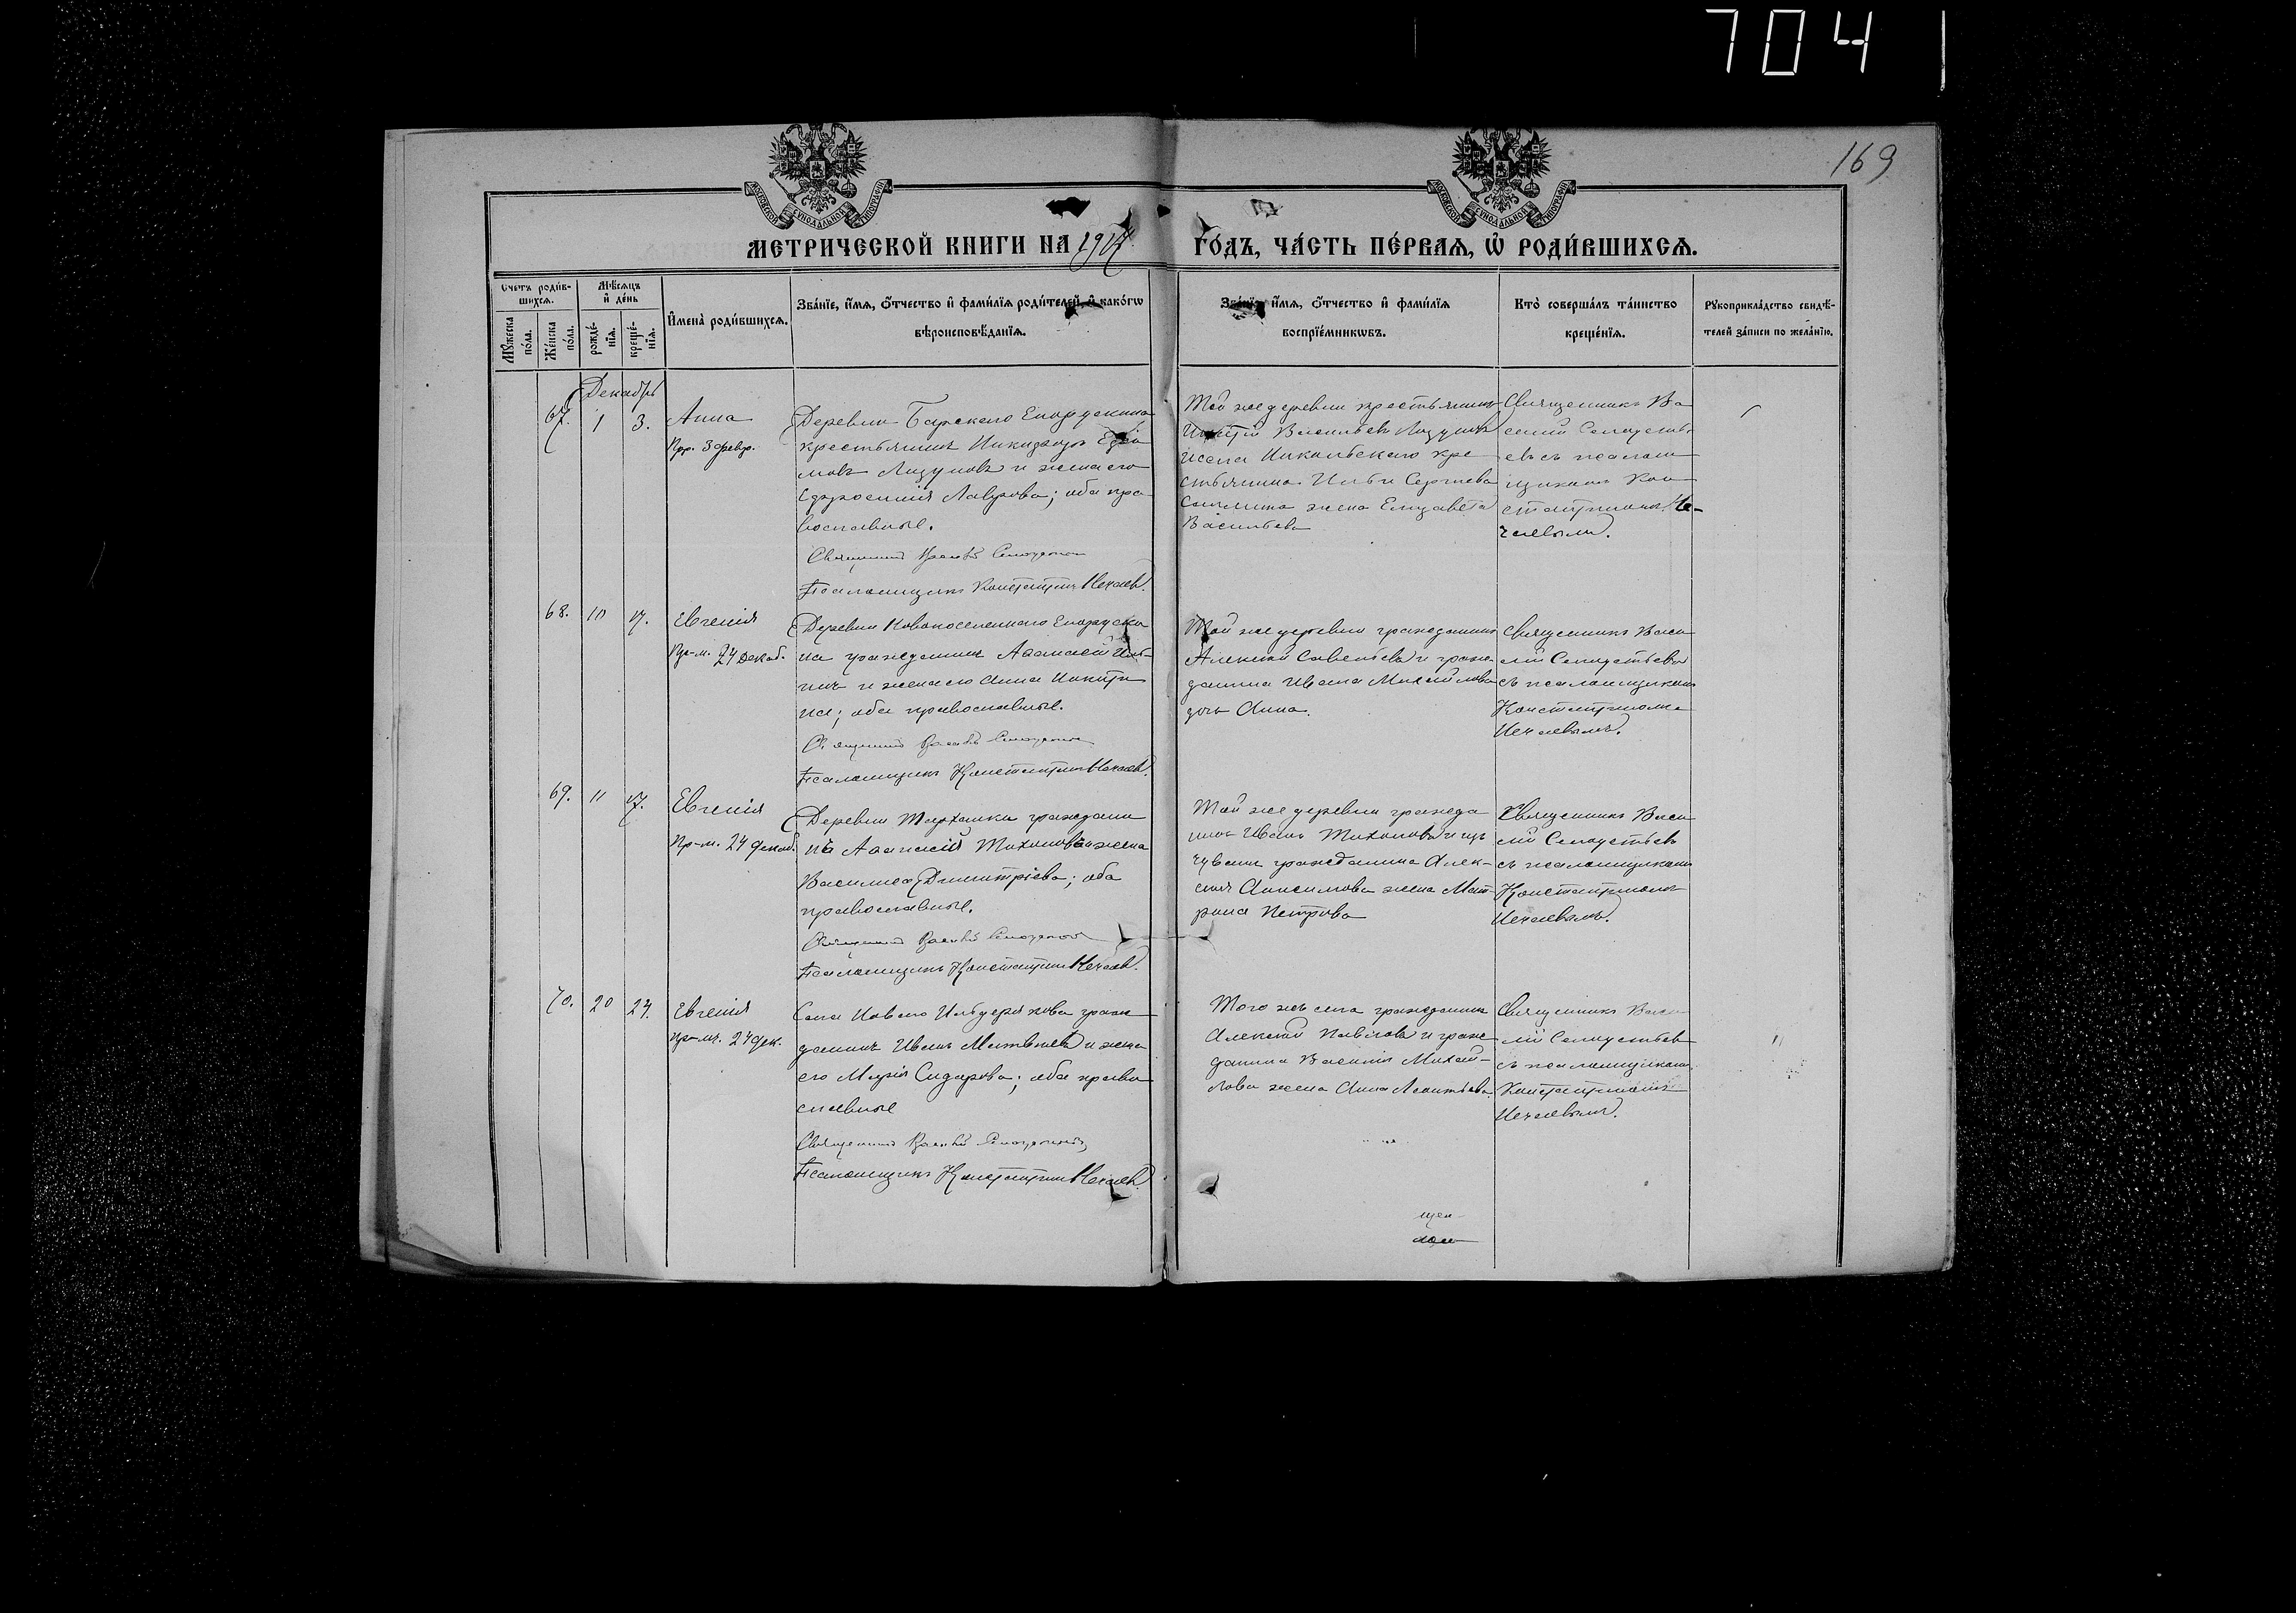 704
169
МОСКОВСКОЙ СѴНОДАЛЬНОЙ ТИПОГРАФІИ
МОСКОВСКОЙ СѴНОДАЛЬНОЙ ТИПОГРАФІИ
МЕТРИЧЕСКОЙ КНИГИ НА 1917 ГО́ДЪ, ЧА́СТЬ ПЕ́РВАѦ, Ѡ҆ РОДИ́ВШИХСѦ.
Счетъ роди́вшихсѧ.
Мꙋ́жеска по́ла.
Же́нска по́ла.
Мѣ́сѧцъ и҆ де́нь
рожде́нїѧ.
креще́нїѧ.
И҆мена̀ роди́вшихсѧ.
Зва́нїе, и҆́мѧ, ѻ҆́тчество и҆ фами́лїѧ роди́телей, и҆ како́гѡ
вѣроисповѣ́данїѧ.
Зва́нїе, и҆́мѧ, ѻ҆́тчество и҆ фами́лїѧ
воспрїе́мникѡвъ.
Кто̀ соверша́лъ та́инство
креще́нїѧ.
Рꙋкоприкла́дство свидѣ́-
телей за́писи по жела́нїю.
Декабрь
67. 1 3. Анна
Пр. 3 февр.
Деревни Барскаго Енорускина
крестьянинъ Никифоръ
мовъ Лизуновъ и жена его
Лаврова; оба пра
вославные.
Священникъ Василій
Псаломщикъ Константинъ Нечаевъ.
Той же деревни крестьянинъ
Васильевъ Лизуновъ
и села Никольскаго кре
стьянина Ильи Сергѣева
жена Елизавета
Васильева
Священникъ Ва
силій
евъ съ псалом
щикомъ Кон
стантиномъ Не-
чаевымъ.
68. 10 17. Евгенія
Пр-м. 24 декаб.
Деревни Новопоселеннаго Еноруски
на гражданинъ Аѳанасій Иль
инъ и жена его Анна Никити
на; оба православные.
Священникъ Василій
Псаломщикъ Константинъ Нечаевъ.
Той же деревни гражданинъ
Алексѣй Савельевъ и граж-
данина Ивана Михайлова
дочь Анна.
Священникъ Васи
лій
съ псаломщикомъ
Константиномъ
Нечаевымъ.
69. 11 17. Евгенія
Пр-м. 24 декаб.
Деревни Тарханки граждани
нъ Аѳанасій Тихоновъ и жена
Василиса Димитріева; оба
православные.
Священникъ Василій
Псаломщикъ Константинъ Нечаевъ.
Той же деревни гражда
нинъ Иванъ Тихоновъ и изъ
чувашъ гражданина Алек-
сѣя Анисимова жена Мат-
рона Петрова
Священникъ Васи
лій
съ псаломщикомъ
Константиномъ
Нечаевымъ.
70. 20 24. Евгенія
пр-мч. 24 дек.
Села Новаго Ильдерякова граж
данинъ Иванъ Матвѣевъ и жена
его Марія Сидорова; оба право
славные
Священникъ Василій
Псаломщикъ Константинъ Нечаевъ.
Того же села гражданинъ
Алексѣй Павловъ и граж
данина Василія Михай-
лова жена Анна Леонтьева.
Священникъ Васи
лій
съ псаломщикомъ
Константиномъ
Нечаевымъ.